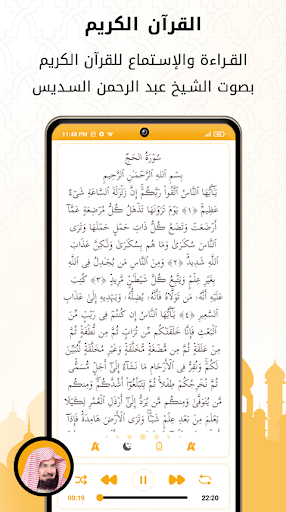 القرآن الكريم
القراءة والإستماع للقرآن الكريم
بصوت الشيخ عبد الرحمن السديس
11:48 PM
سُورَةُ الحَجِّ
بِسْمِ اللَّهِ الرَّحْمَٰنِ الرَّحِيمِ
يَٰٓأَيُّهَا النَّاسُ اتَّقُوا۟ رَبَّكُمْ إِنَّ زَلْزَلَةَ السَّاعَةِ شَىْءٌ
عَظِيمٌ ﴿١﴾ يَوْمَ تَرَوْنَهَا تَذْهَلُ كُلُّ مُرْضِعَةٍ عَمَّآ
أَرْضَعَتْ وَتَضَعُ كُلُّ ذَاتِ حَمْلٍ حَمْلَهَا وَتَرَى
النَّاسَ سُكَٰرَىٰ وَمَا هُم بِسُكَٰرَىٰ وَلَٰكِنَّ عَذَابَ
اللَّهِ شَدِيدٌ ﴿٢﴾ وَمِنَ النَّاسِ مَن يُجَٰدِلُ فِى اللَّهِ
بِغَيْرِ عِلْمٍ وَيَتَّبِعُ كُلَّ شَيْطَٰنٍ مَّرِيدٍ ﴿٣﴾ كُتِبَ
عَلَيْهِ أَنَّهُۥ مَن تَوَلَّاهُ فَأَنَّهُۥ يُضِلُّهُۥ وَيَهْدِيهِ إِلَىٰ عَذَابِ
السَّعِيرِ ﴿٤﴾ يَٰٓأَيُّهَا النَّاسُ إِن كُنتُمْ فِى رَيْبٍ مِّنَ
الْبَعْثِ فَإِنَّا خَلَقْنَٰكُم مِّن تُرَابٍ ثُمَّ مِن نُّطْفَةٍ ثُمَّ
مِنْ عَلَقَةٍ ثُمَّ مِن مُّضْغَةٍ مُّخَلَّقَةٍ وَغَيْرِ مُخَلَّقَةٍ لِّنُبَيِّنَ
لَكُمْ وَنُقِرُّ فِى الْأَرْحَامِ مَا نَشَآءُ إِلَىٰٓ أَجَلٍ مُّسَمًّى
ثُمَّ نُخْرِجُكُمْ طِفْلًا ثُمَّ لِتَبْلُغُوٓا۟ أَشُدَّكُمْ وَمِنكُم
مَّن يُتَوَفَّىٰ وَمِنكُم مَّن يُرَدُّ إِلَىٰٓ أَرْذَلِ الْعُمُرِ لِكَيْلَا
يَعْلَمَ مِنۢ بَعْدِ عِلْمٍ شَيْـًٔا وَتَرَى الْأَرْضَ هَامِدَةً فَإِذَآ
00:19
22:20